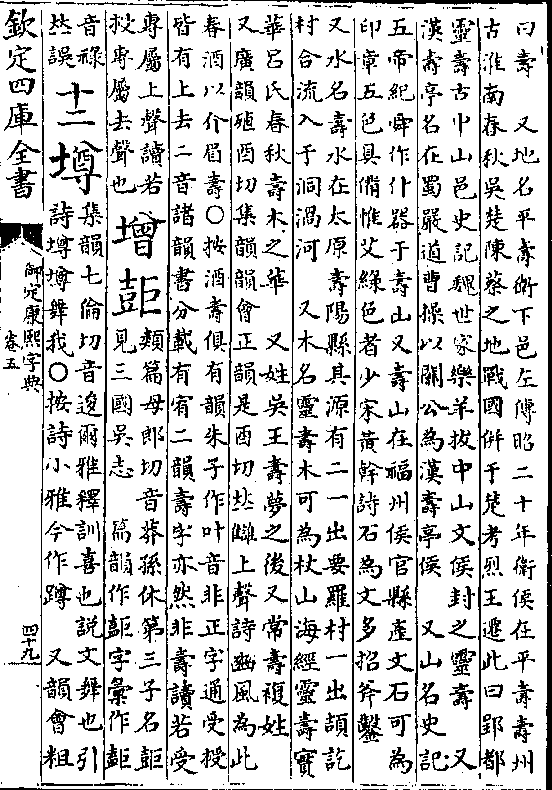 曰壽　又地名平壽衛下邑左傳昭二十年衛侯在平壽壽州
古淮南春秋吳楚陳蔡之地戰國併于楚考烈王遷此曰郢都
靈壽古中山邑史記魏世家樂羊拔中山文侯封之靈壽　又
漢壽亭名在蜀嚴道曹操以關公為漢壽亭侯　又山名史記
五帝紀舜作什器于壽山又壽山在福州侯官縣產文石可為
印章五色具備惟艾綠色者少宋黃幹詩石為文多招斧鑿
又水名壽水在太原壽陽縣其源有二一出要羅村一出頡訖
村合流入于洞渦河　又木名靈壽木可為杖山海經靈壽實
華呂氏春秋壽木之華　又姓吳王壽夢之後又常壽複姓
又廣韻殖酉切集韻韻會正韻是酉切𠀤讎上聲詩豳風為此
春酒以介眉壽○按酒壽俱有韻朱子作叶音非正字通受授
皆有上去二音諸韻書分載有宥二韻壽字亦然非壽讀若受
專屬上聲讀若
授專屬去聲也
𡔹
𡔷
類篇母郎切音莽孫休第三子名𡔷
見三國吳志　篇韻作𡔷字彙作𡔷
音祿
𠀤誤
十二
壿
集韻七倫切音逡爾雅釋訓喜也說文舞也引
詩壿壿舞我○按詩小雅今作蹲　又韻會粗
欽定四庫全書
御定康熙字典
卷五
四十九